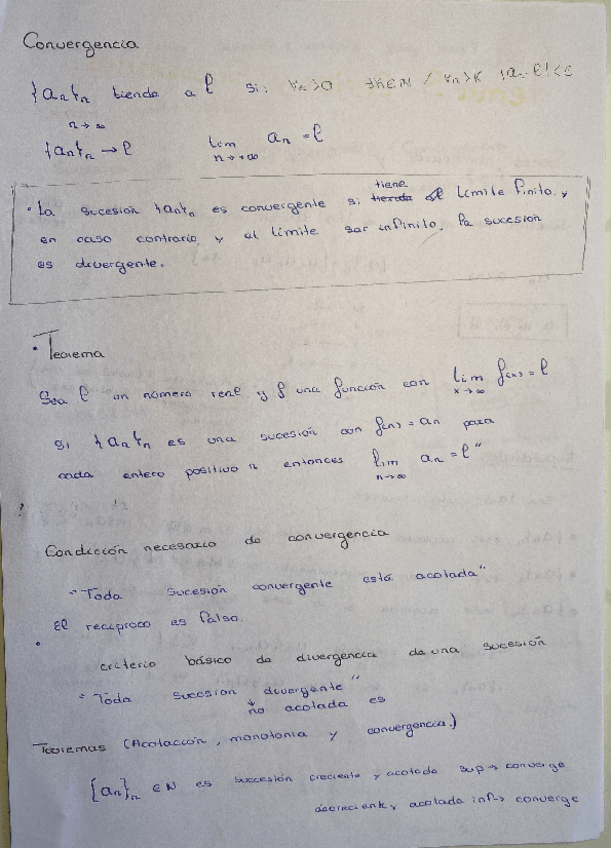 Convergencia
{an}n tiende a l si: ∀ε>0 ∃K∈N / ∀n>K |an-l|<ε
n→∞
{an}n → l lim n→∞ an = l
• La sucesión {an}n es convergente si tiene límite finito, y
en caso contrario, y el límite ser infinito, la sucesión
es divergente.
• Teorema
Sea l un número real y f una función con lim x→∞ f(x) = l
si {an}n es una sucesión con f(n) = an para
cada entero positivo n entonces lim n→∞ an = l"
?
Condición necesario de convergencia
"Toda sucesión convergente está acotada"
El recíproco es falso.
• criterio básico de divergencia de una sucesión
"Toda sucesión divergente"
↓
no acotada es
Teoremas (Acotacción, monotonía y convergencia.)
{an}n ∈N es sucesión creciente y acotada sup → converge
decreciente y acotada inf → converge